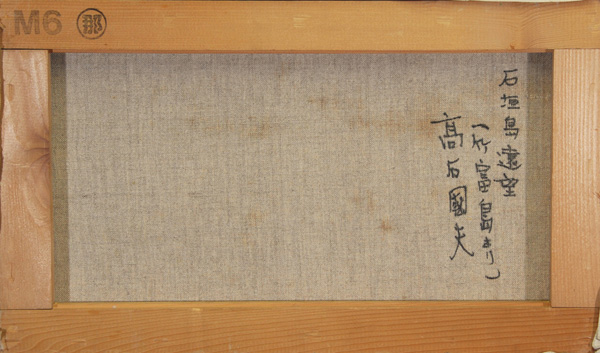 M6 那
石垣島遠望
(竹富島より)
高石國夫